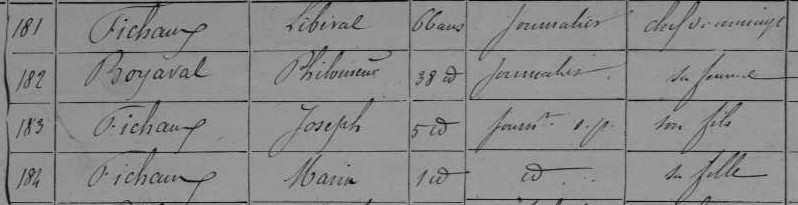 181 Fichaux Libéral 66 ans journalier chef de ménage
182 Boyaval Philomène 38 id journalière sa femme
183 Fichaux Joseph 5 id son fils
184 Fichaux Maria 1 id id sa fille